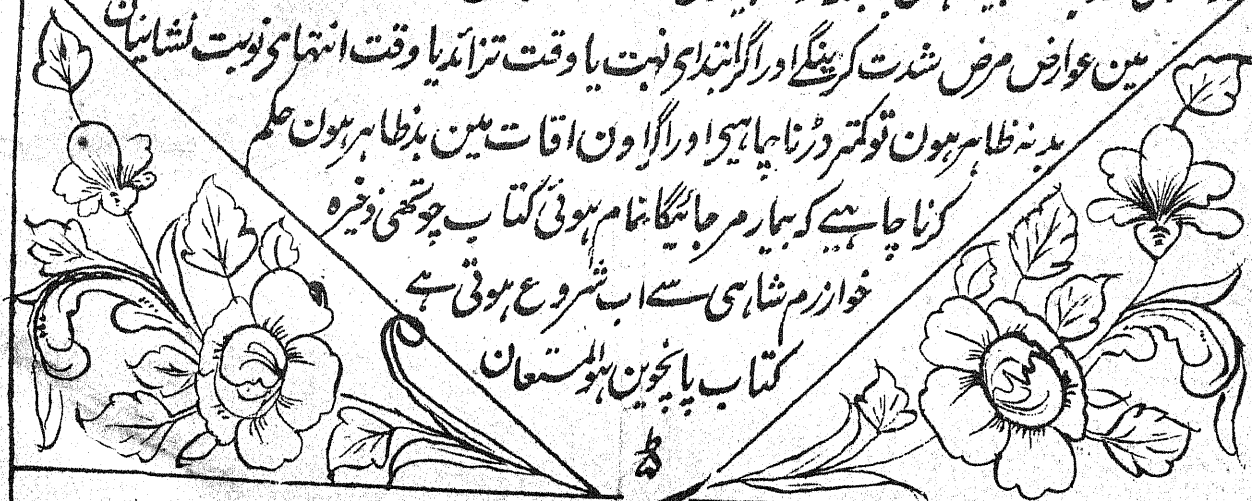 مین عوارض مرض شدت کرینگے اور اگر ابتدای نہبت یا وقت تزائد یا وقت انتہای نوبت نشانیان
بد نہ ظاہر ہون تو کمتر ڈرنا چاہیی اور اگر اون اقات مین بد ظاہر ہون حکم
کرنا چاہیے کہ بیمار مر جائیگا تمام ہوئی کتاب چوتھی ذخیرہ
خوارزم شاہی سے اب شروع ہوتی ہے
کتاب پانچوین ہوالمستعان